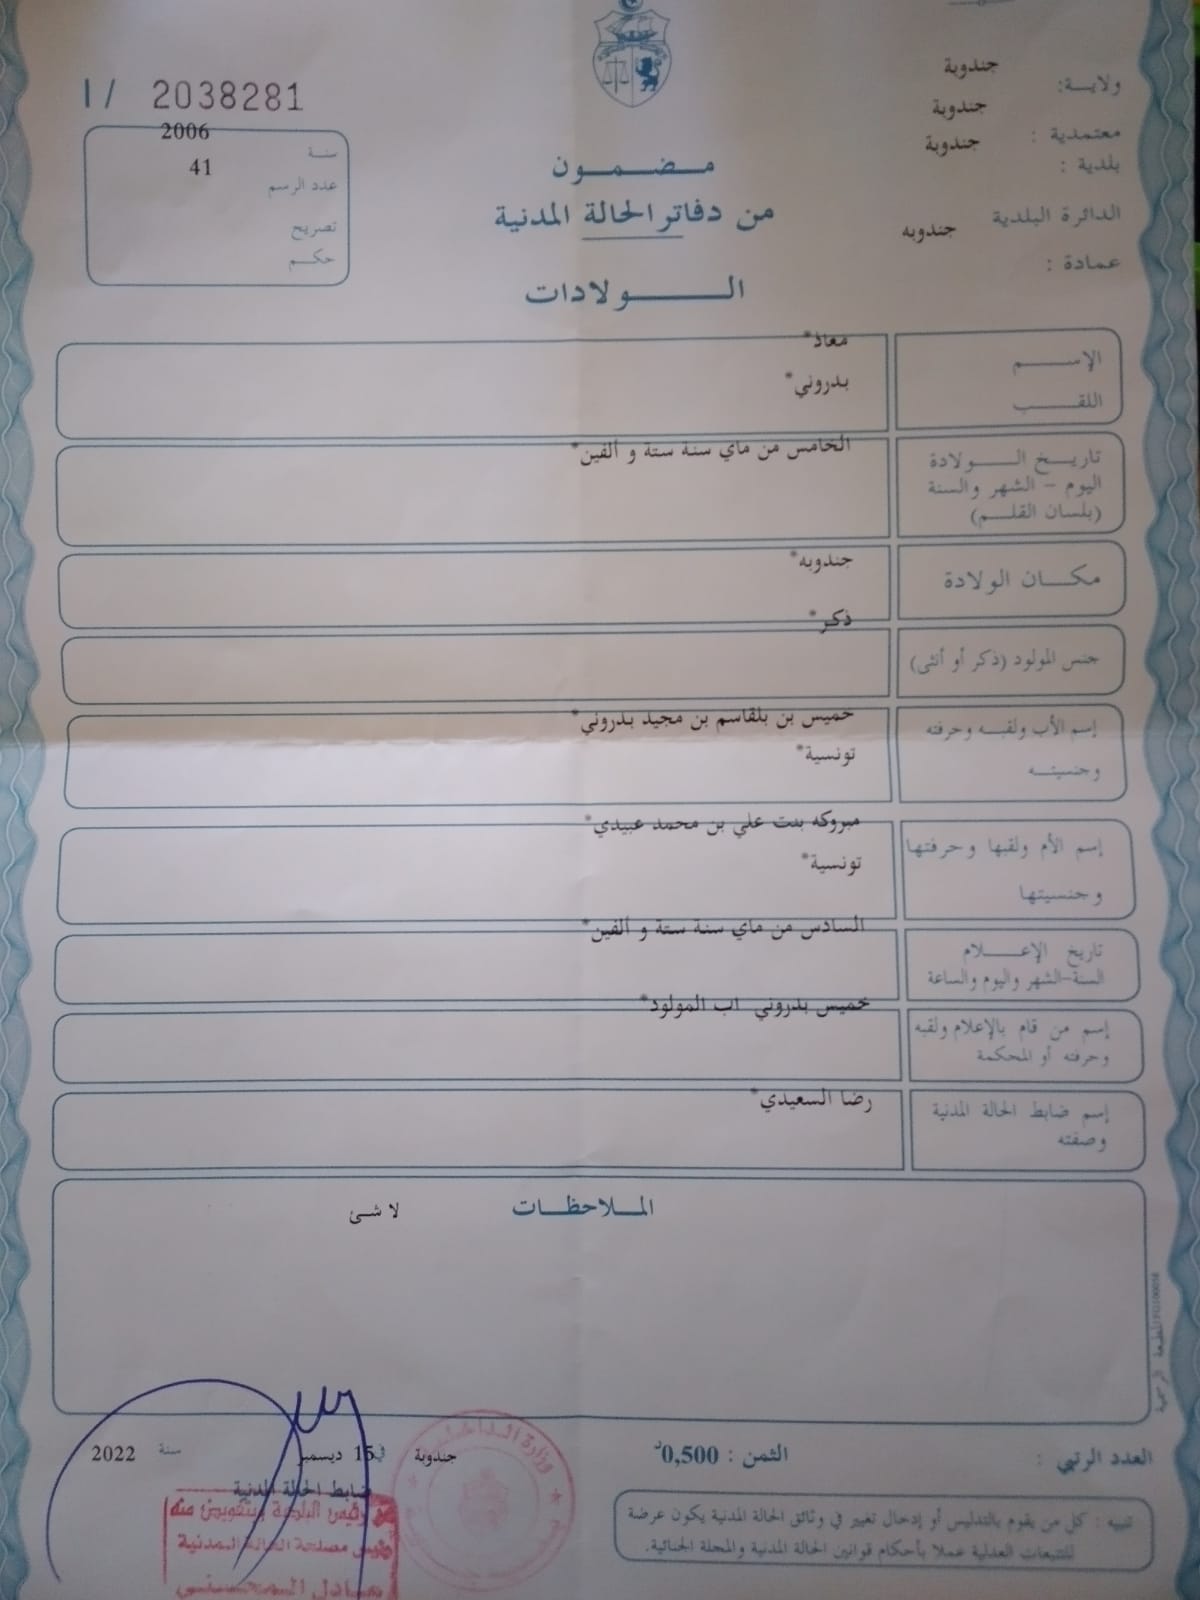 ولايـــة: جندوبة
معتمدية : جندوبة
بلدية : جندوبة
الدائرة البلدية جندوبه
عمادة :
I/ 2038281
سنـة 2006
عدد الرسم 41
تصريح
حكـم
مـضـمـون
من دفاتر الحالة المدنية
الـــولادات
الإســـم معاذ*
اللقـــب بدروني*
تاريـخ الـــولادة الخامس من ماي سنة ستة و الفين*
اليوم - الشهر والسنة
(بلسان القلـم)
مكـان الولادة جندوبه*
جنس المولود (ذكر أو أنثى) ذكر*
إسم الأب ولقبـه وحرفته خميس بن بلقاسم بن مجيد بدروني*
وجنسيتـه تونسية*
إسم الأم ولقبها وحرفتها مبروكه بنت علي بن محمد عبيدي*
وجنسيتها تونسية*
تاريخ الإعـــلام السادس من ماي سنة ستة و الفين*
السنة-الشهر واليوم والساعة
إسم من قام بالإعلام ولقبه خميس بدروني اب المولود*
وحرفته أو المحكمة
إسم ضابط الحالة المدنية رضا السعيدي*
وصفته
المـلاحظـات
لا شئ
العدد الرتبي :
الثمن : 0,500د
جندوبة في 15 ديسمبر سنة 2022
ضابط الحالة المدنية
وزارة الداخلية
عن رئيس البلدية وبتفويض منه
رئيس مصلحة الحالة المدنية
تنبيه : كل من يقوم بالتدليس أو إدخال تغيير في وثائق الحالة المدنية يكون عرضة
للتتبعات العدلية عملا بأحكام قوانين الحالة المدنية والمجلة الجنائية.
المطبعة الرسمية